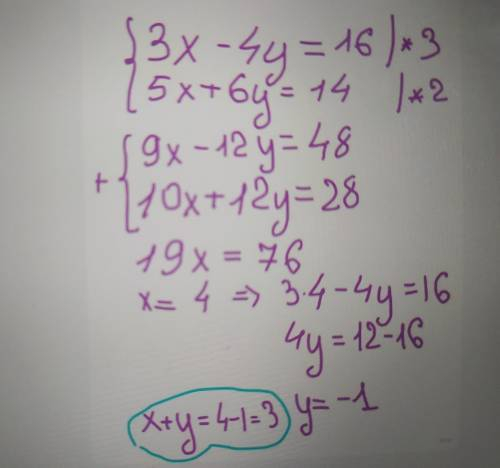 {3x - 4y = 16 |*3
{5x + 6y = 14 |*2
+ {9x - 12y = 48
{10x + 12y = 28
19x = 76
x = 4 => 3·4 - 4y = 16
4y = 12 - 16
y = -1
x + y = 4 - 1 = 3